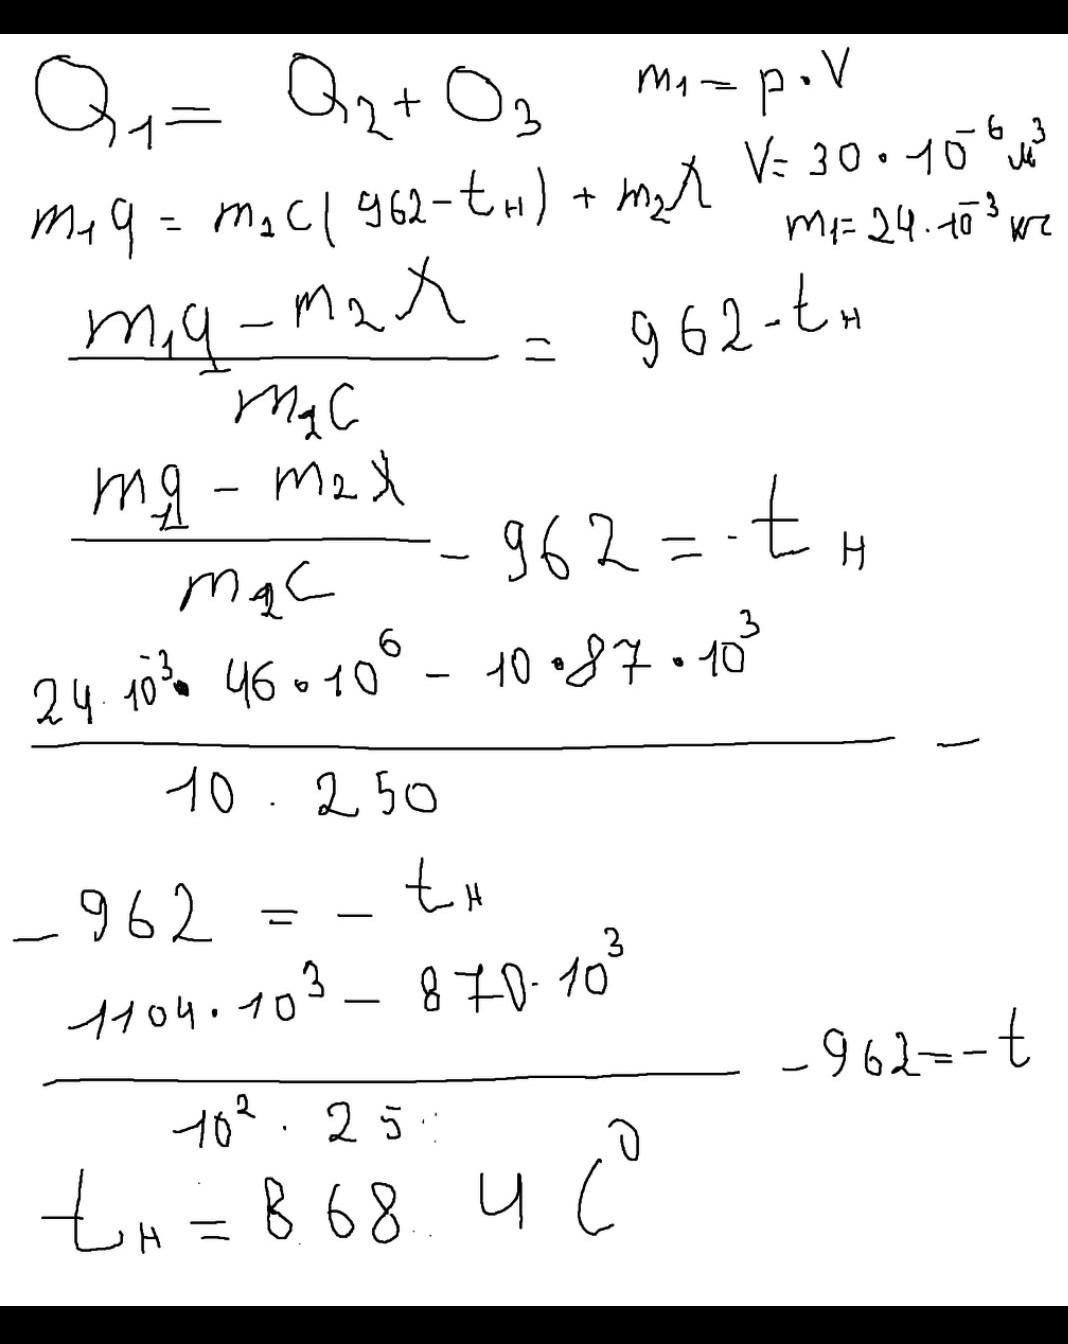 Q₁ = Q₂ + O₃
m₁ = p · V
V = 30 · 10⁻⁶ м³
m₁q = m₂c(962 - tн) + m₂λ
m₁ = 24 · 10⁻³ кг
(m₁q - m₂λ) / (m₂c) = 962 - tн
(m₁q - m₂λ) / (m₂c) - 962 = - tн
(24 · 10⁻³ · 46 · 10⁶ - 10 · 87 · 10³) / (10 · 250) -
- 962 = - tн
(1104 · 10³ - 870 · 10³) / (10² · 25) - 962 = - t
tн = 868.4 C⁰